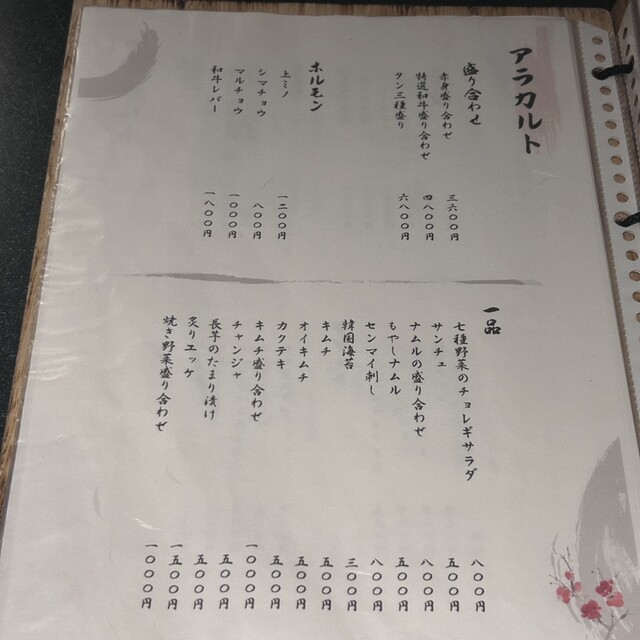 アラカルト
盛り合わせ
赤身盛り合わせ 三六〇〇円
特選和牛盛り合わせ 四八〇〇円
タン三種盛り 六八〇〇円
ホルモン
上ミノ 一二〇〇円
シマチョウ 八〇〇円
マルチョウ 一〇〇〇円
和牛レバー 一八〇〇円
一品
七種野菜のチョレギサラダ 八〇〇円
サンチュ 五〇〇円
ナムルの盛り合わせ 八〇〇円
もやしナムル 五〇〇円
センマイ刺し 八〇〇円
韓国海苔 三〇〇円
キムチ 五〇〇円
オイキムチ 五〇〇円
カクテキ 五〇〇円
キムチ盛り合わせ 一〇〇〇円
チャンジャ 五〇〇円
長芋のたまり漬け 五〇〇円
炙りユッケ 一五〇〇円
焼き野菜盛り合わせ 一〇〇〇円